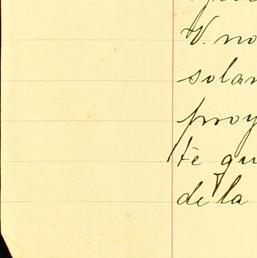 V. no
solam
proy
te qu
de la